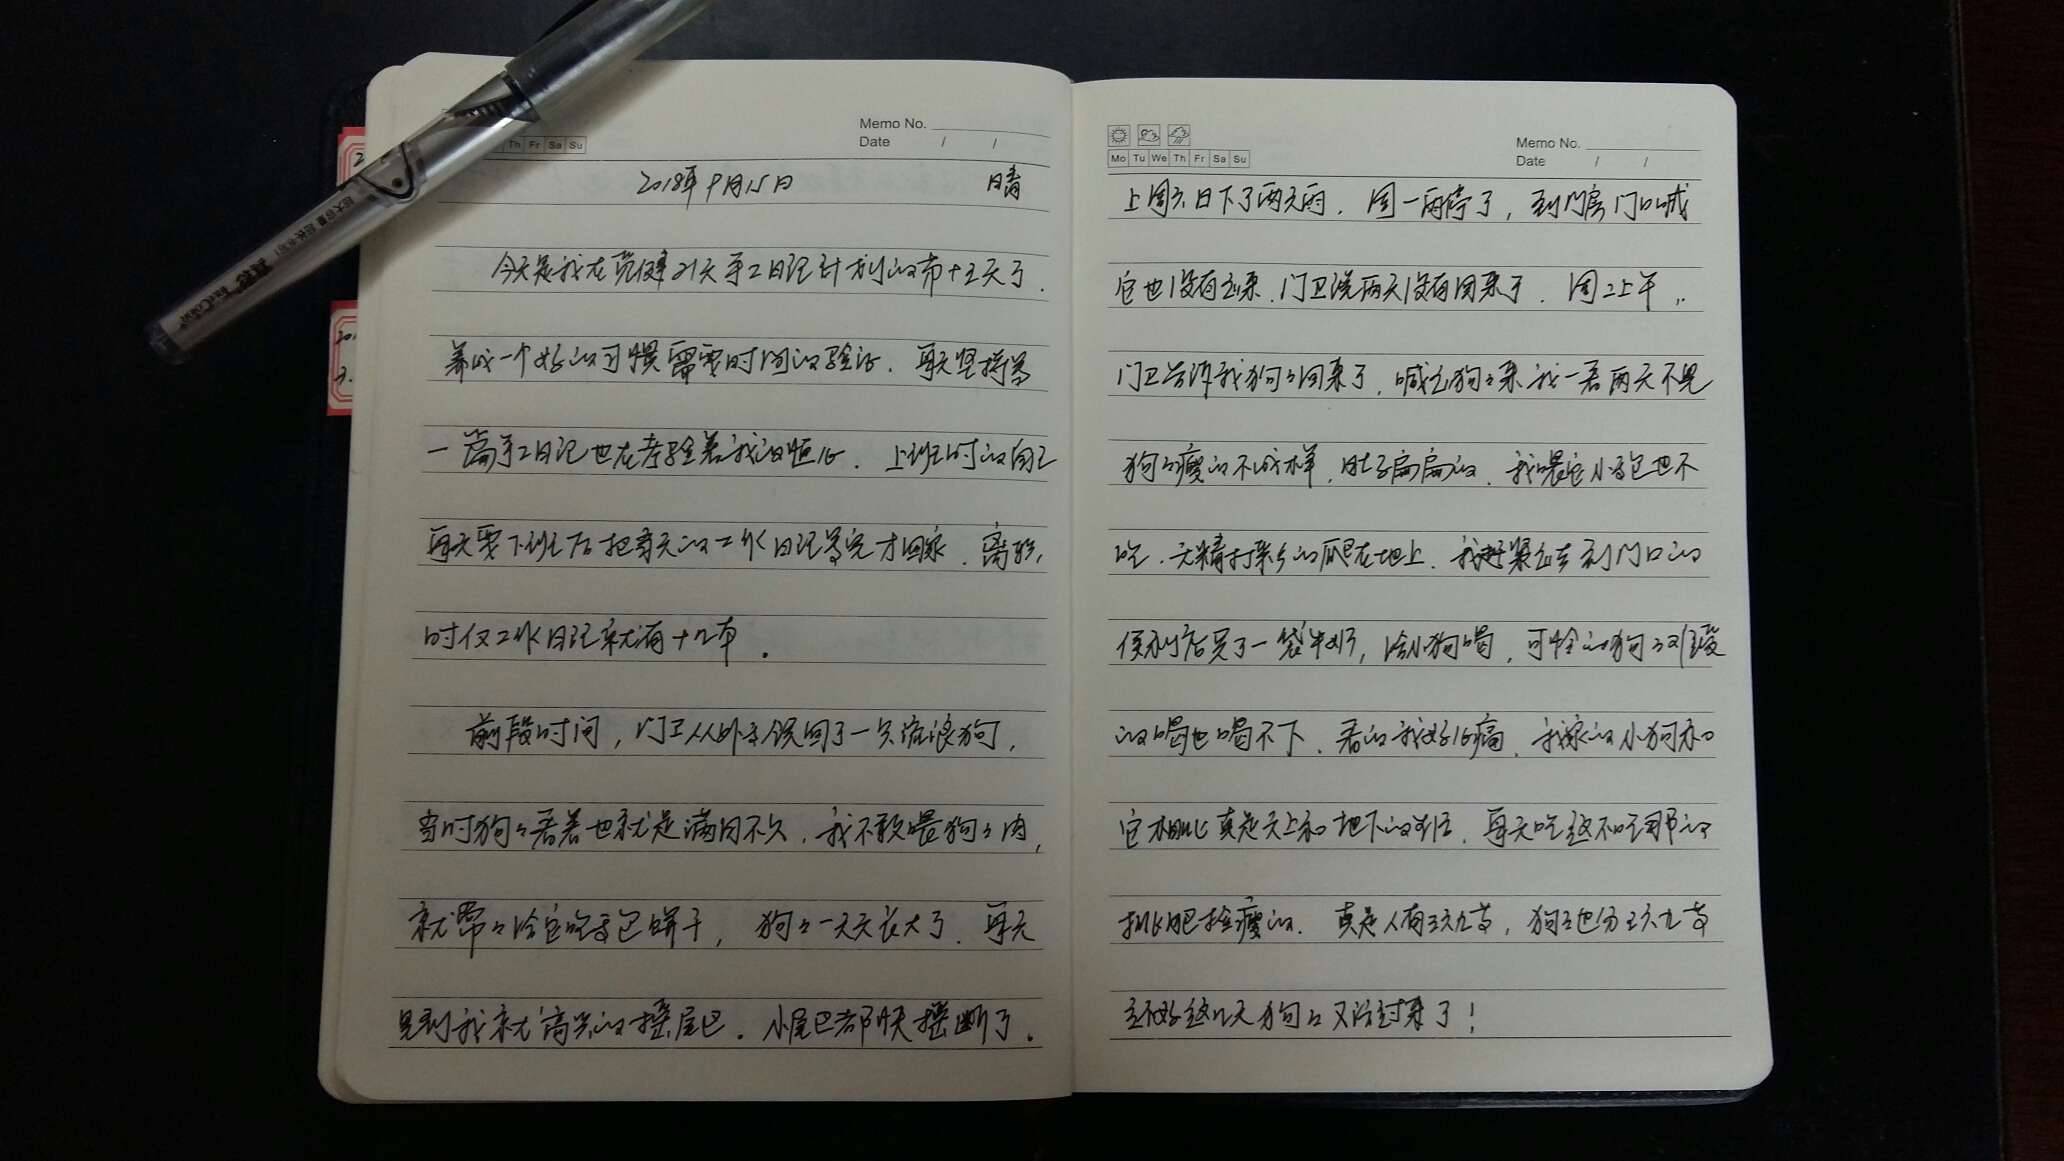 Memo No.
Date / /
Th Fr Sa Su
2018年9月15日 晴
今天是我在竞健21天手工日记计划的第十五天了.
养成一个好的习惯需要时间的验证. 每天坚持写
一篇手工日记也在考验着我的恒心. 上班时的自己
每天要下班后把当天的工作日记写完才回家. 离职
时仅工作日记就有十几本.
前段时间, 门卫从外来领回了一只流浪狗,
当时狗々看着也就是满月不久. 我不敢喂狗々肉,
就常々给它吃面包饼干, 狗々一天天长大了. 每天
见到我就高兴的摇尾巴. 小尾巴都快摇断了.
Mo Tu We Th Fr Sa Su
Memo No.
Date / /
上周六日下了两天雨. 周一雨停了, 到门房门口喊
它也没有出来. 门卫说两天没有回来了. 周二上午,
门卫告诉我狗々回来了, 喊出狗々来我一看两天不见
狗々瘦的不成样, 肚子扁扁的. 我喂它小面包也不
吃. 无精打采的爬在地上. 我赶紧出去到门口的
便利店买了一袋牛奶, 给小狗喝, 可怜的狗々
的喝也喝不下. 看的我好心痛. 我家的小狗和
它相比真是天上和地下的生活. 每天吃这不吃那的
挑肥捡瘦的. 真是人有三六九等, 狗々也分三六九等
还好这几天狗々又活过来了!